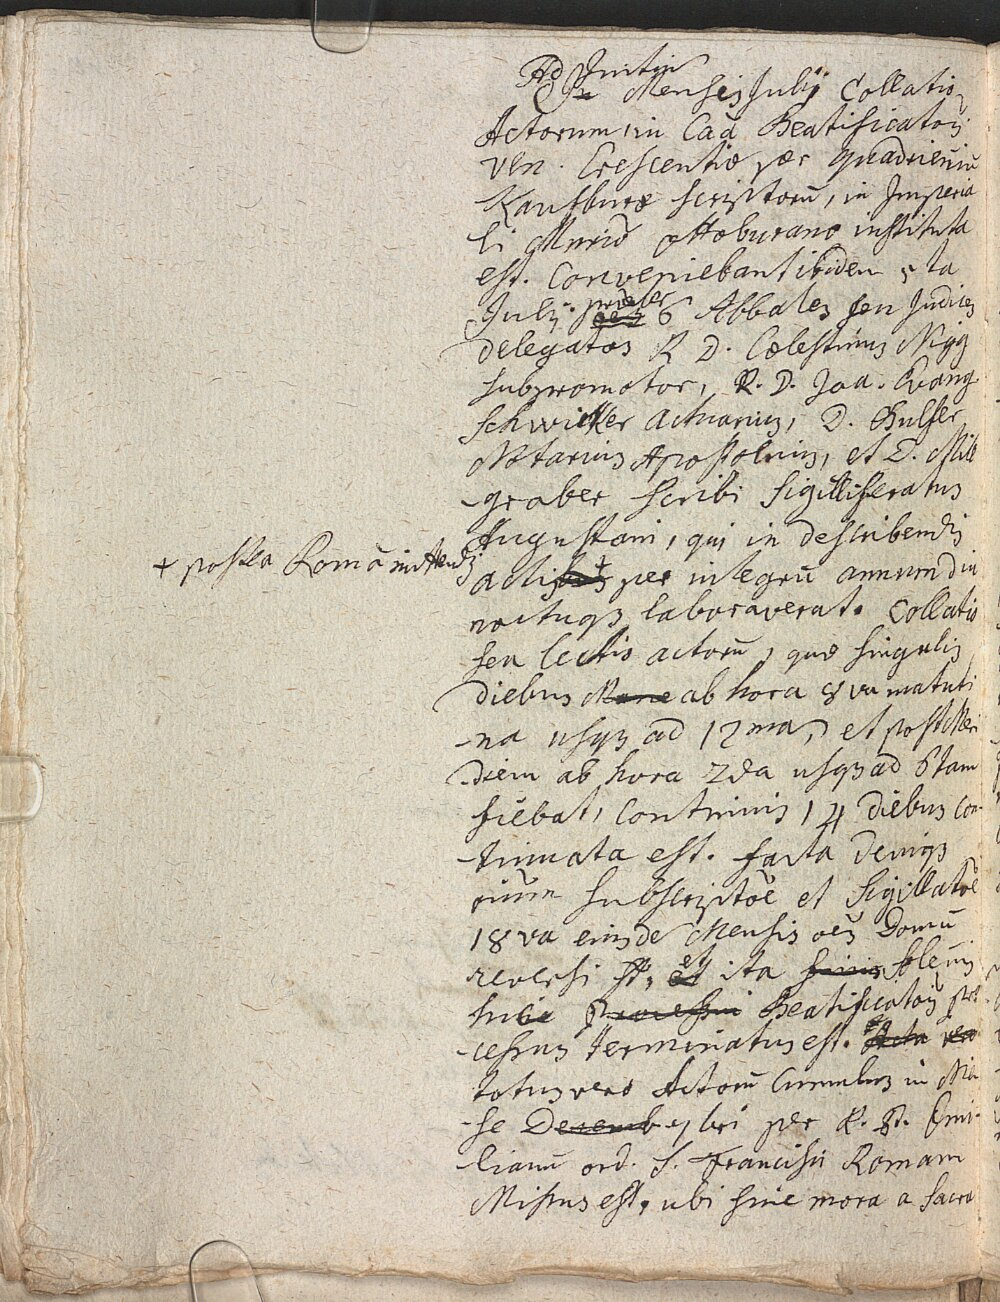 Ad Initiu
Mensis Julij Collatio
Actorum, in Cau Beatificatois
Ven. Crescentiæ per quadrieniu
Kaufburæ scriptoru, in Imperia
li Mnrio Ottoburano instituta
est. Conveniebant ibidem 5ta
Julij præter 6 Abbates seu Judices
delegatos R. D. Cælestinus Nigg
subpromotor, R. D. Joa. Evang
Schwicker Actuarius, D. Hulser
Notarius Apostolicus, et D. Mill
graber scribi sigilliferatus
Augustani, qui in describendis
+ postea Romā mittendis
actis + per integrū annum diu
noctuq3 laboraverat. Collatio
seu lectio actorū, quæ singulis
diebus Mane ab hora 8va matuti
na usq3 ad 12ma, et post Meri
diem ab hora 2da usq3 ad 6tam
fiebat, continuis 14 diebus con
tinuata est. facta deniq3
oium subscriptoe et sigillatoe
18va eiusde Mensis oes Domū
reversi st, et ita solenis
hic Processus Beatificatois pro
cessus terminatus est. Acta vero
totus vero Actorū Cumulus in Me
se Decemb 7bri per R. P. Emi
lianū ord. S. Francisci Romam
Missus est, ubi sine mora a sacra